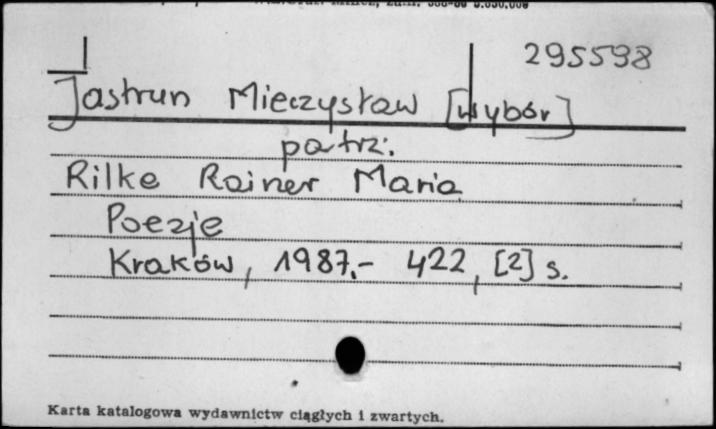 295598
Jastrun Mieczysław [wybór]
patrz:
Rilke Rainer Maria
Poezje
Kraków, 1987.- 422, [2] s.
Karta katalogowa wydawnictw ciągłych i zwartych.